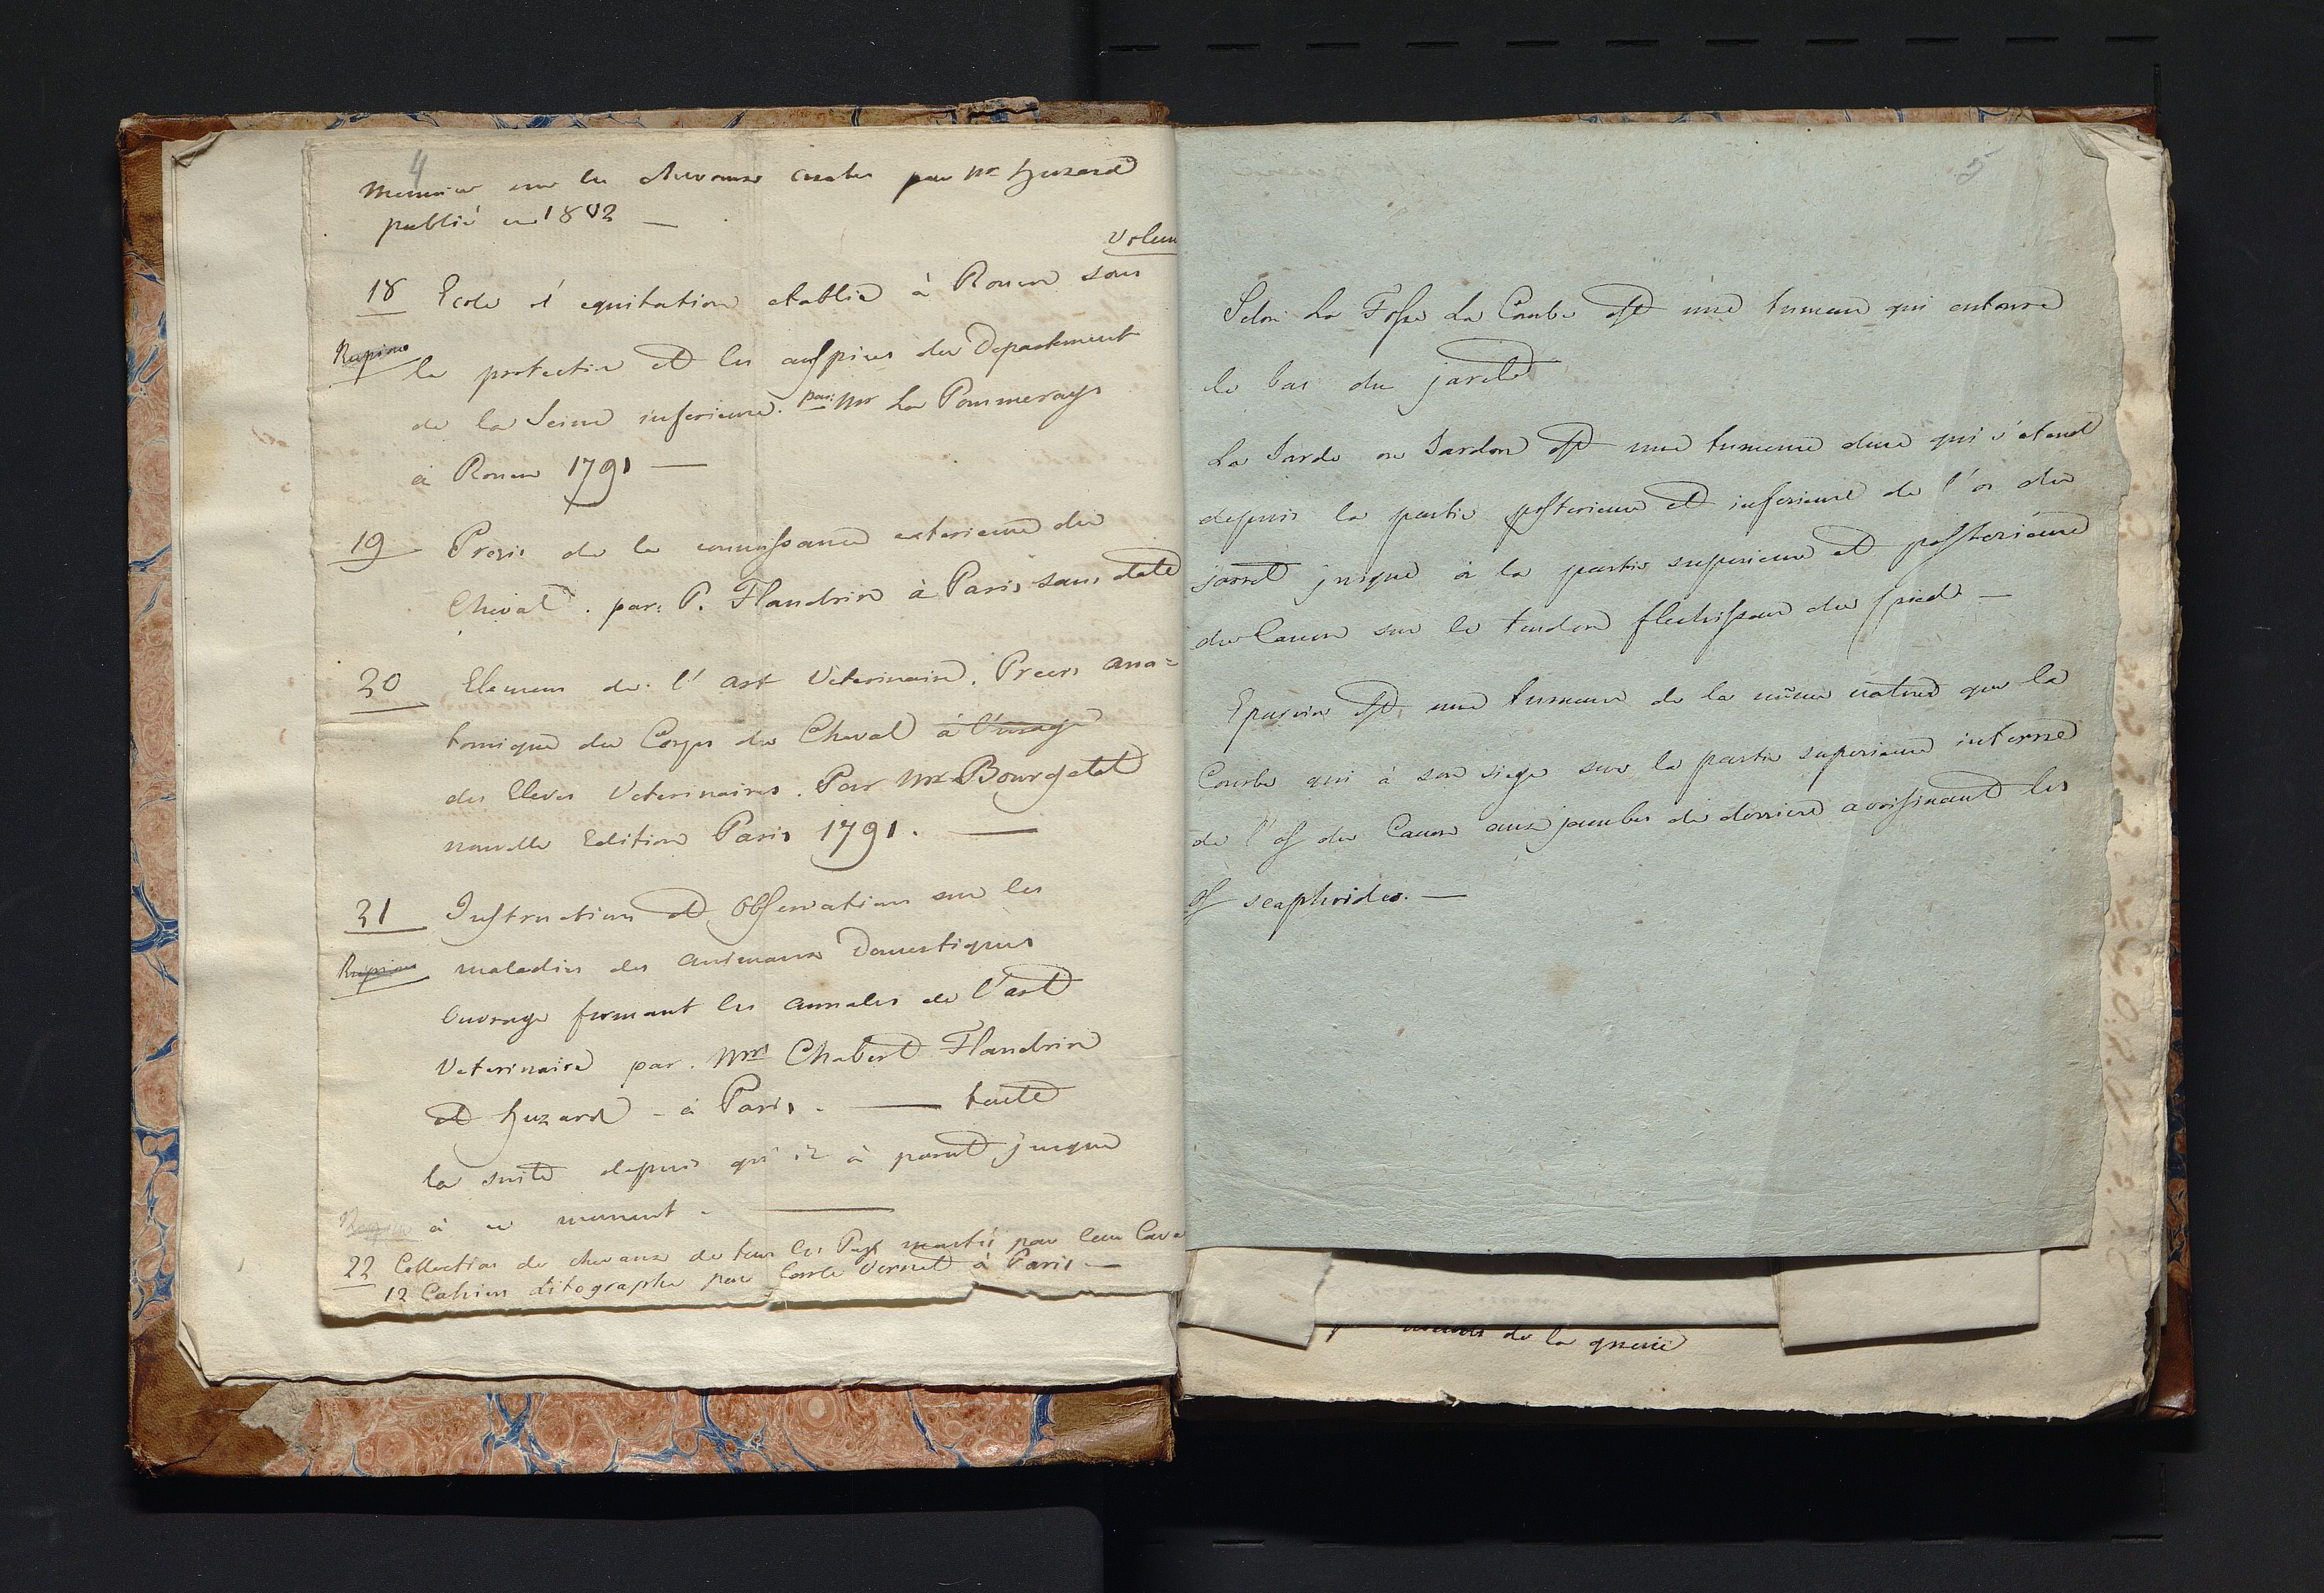 4
Memoire sur les chevaux arabes par Mr Huzard
publié en 1802 —
Volum
18 Ecole d'equitation etablie à Rouen sous
la protection et les auspices du Departement
de la Seine inferieure. par: Mr La Pommeraye
à Rouen 1791 —
19 Precis de la connoissance exterieure du
Cheval. par: P. Flandrin à Paris sans date
20 Elemens de l'art Veterinaire. Precis ana=
tomique du Corps du Cheval à l'usage
des Eleves Veterinaires. Par Mr Bourgelat
nouvelle Edition Paris 1791. —
21 Instructions et Observations sur les
maladies des animaux Domestiques
Ouvrage formant les annales de l'art
Veterinaire par. Mrs Chabert Flandrin
et Huzard - à Paris. — toute
la suite depuis qu'il à parut jusque
à ce moment. —
22 Collection de chevaux de tous les Pays montés par leur Cava
12 Cahiers litographe par Carle Vernet à Paris —
5
Selon La Fosse La Courbe est une tumeur qui entoure
le bas du jaret
La Jarde ou Jardon est une tumeure dure qui s'etend
depuis la partie posterieure et inferieure de l'os du
jarret jusque à la partie superieure et posterieure
du Canon sur le tendon flechisseur du pied —
Eparvin est une tumeure de la même nature que la
Courbe qui à son siege sur la partie superieure interne
de l'os du Canon aux jambes de derriere avoisinant les
os scaphoides. —
de la guerre